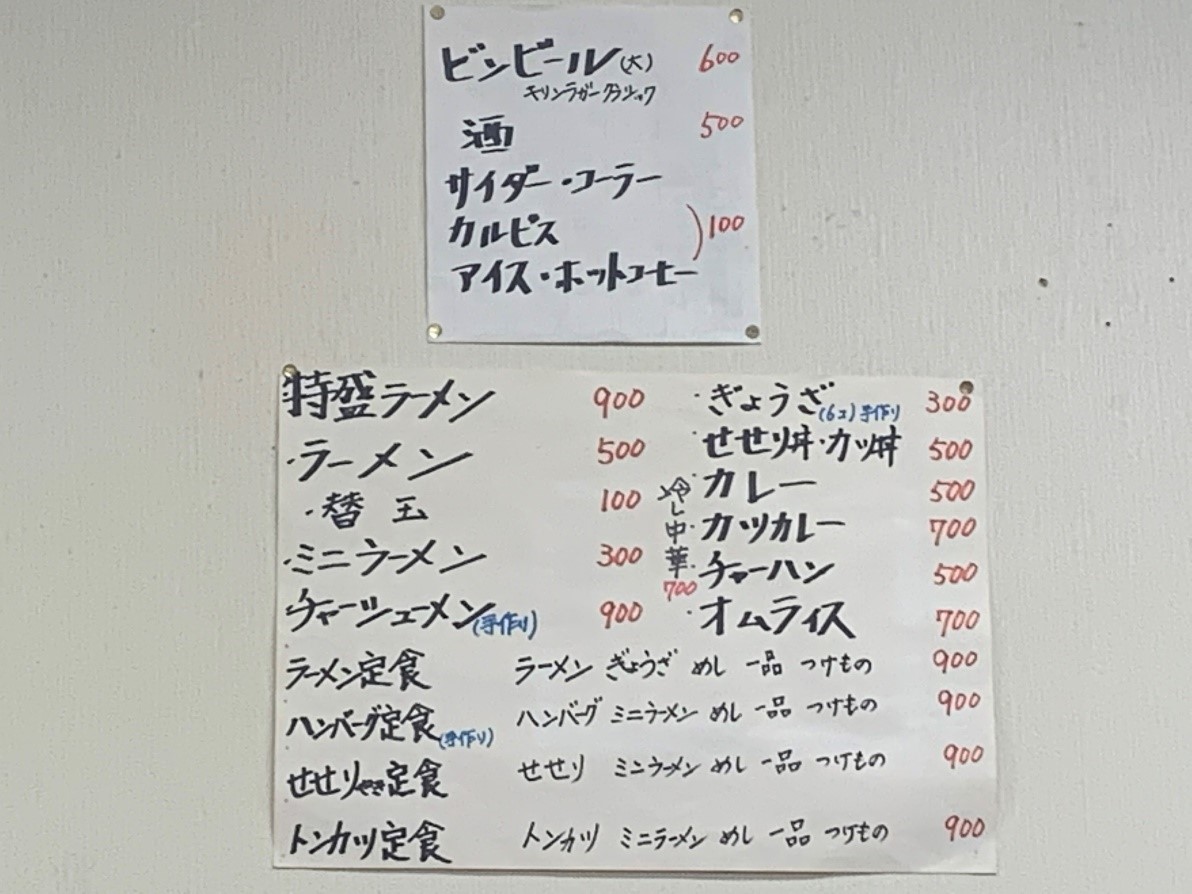 ビンビール(大) 600
キリンラガークラシック
酒 500
サイダー・コーラー
カルピス )100
アイス・ホットコーヒー
特盛ラーメン 900
・ラーメン 500
・替玉 100
・ミニラーメン 300
・チャーシューメン(手作り) 900
・ぎょうざ(6コ)手作り 300
・せせり丼・カツ丼 500
・カレー 500
・カツカレー 700
・チャーハン 500
・オムライス 700
冷し中華 700
ラーメン定食 ラーメン ぎょうざ めし 一品 つけもの 900
ハンバーグ定食(手作り) ハンバーグ ミニラーメン めし 一品 つけもの 900
せせりやき定食 せせり ミニラーメン めし 一品 つけもの 900
トンカツ定食 トンカツ ミニラーメン めし 一品 つけもの 900